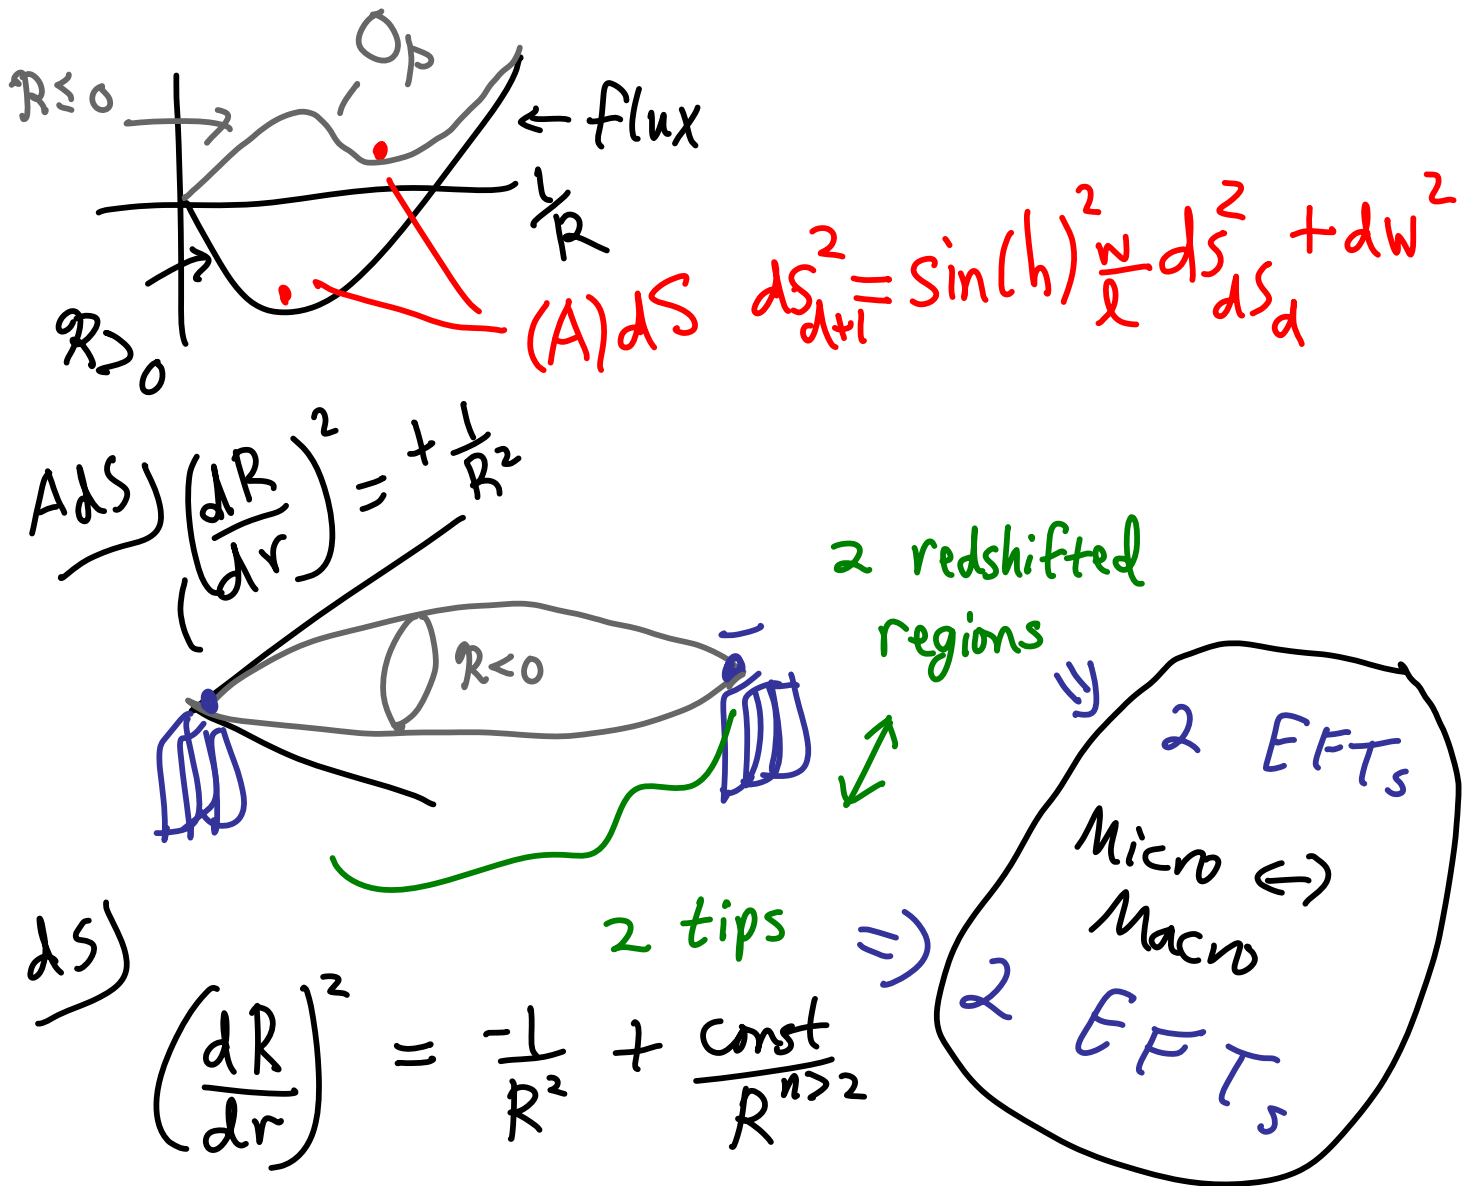 Op
R ≤ 0
← flux
1/R
R > 0
(A)dS
ds²_{d+1} = sin(h)² w/l ds²_{dS_d} + dw²
AdS) (dR/dr)² = + 1/R²
2 redshifted
regions
R < 0
⇒
2 EFTs
Micro ↔
Macro
2 tips ⇒ 2 EFTs
dS)
(dR/dr)² = -1/R² + const/R^{n>2}